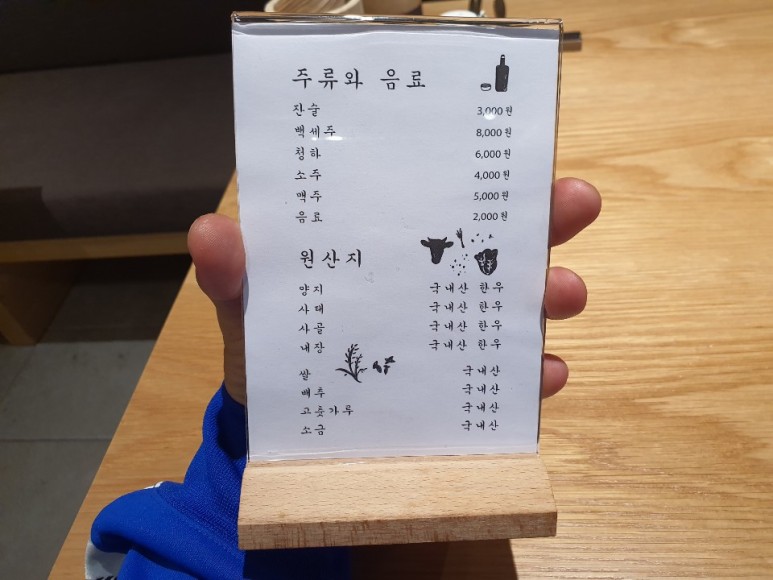 주류와 음료
잔술 3,000원
백세주 8,000원
청하 6,000원
소주 4,000원
맥주 5,000원
음료 2,000원
원산지
양지 국내산 한우
사태 국내산 한우
사골 국내산 한우
내장 국내산 한우
쌀 국내산
배추 국내산
고춧가루 국내산
소금 국내산